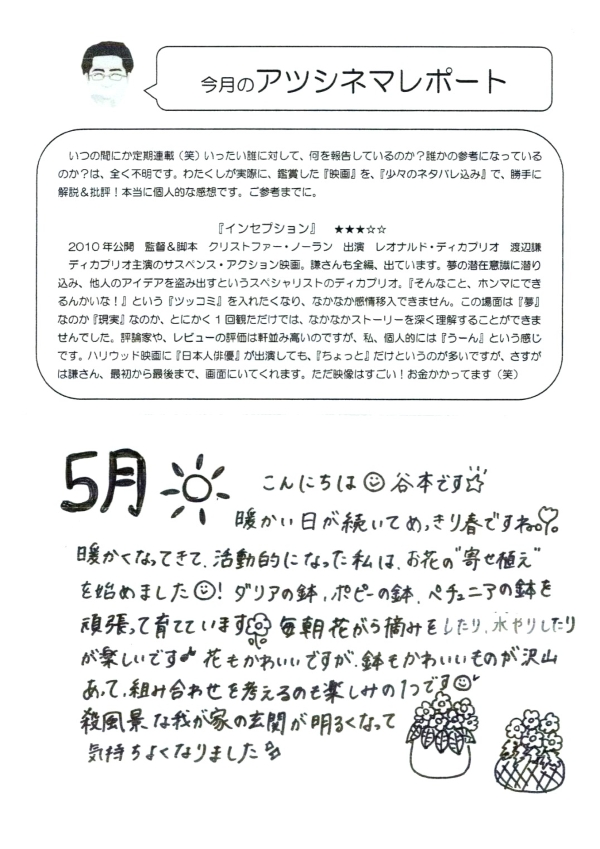 今月のアツシネマレポート
いつの間にか定期連載（笑）いったい誰に対して、何を報告しているのか？誰かの参考になっている
のか？は、全く不明です。わたくしが実際に、鑑賞した『映画』を、『少々のネタバレ込み』で、勝手に
解説＆批評！本当に個人的な感想です。ご参考までに。
『インセプション』　★★★☆☆
2010年公開　監督＆脚本　クリストファー・ノーラン　出演　レオナルド・ディカプリオ　渡辺謙
ディカプリオ主演のサスペンス・アクション映画。謙さんも全編、出ています。夢の潜在意識に潜り
込み、他人のアイデアを盗み出すというスペシャリストのディカプリオ。『そんなこと、ホンマにでき
るんかいな！』という『ツッコミ』を入れたくなり、なかなか感情移入できません。この場面は『夢』
なのか『現実』なのか、とにかく1回観ただけでは、なかなかストーリーを深く理解することができま
せんでした。評論家や、レビューの評価は軒並み高いのですが、私、個人的には『うーん』という感じ
です。ハリウッド映画に『日本人俳優』が出演しても、『ちょっと』だけというのが多いですが、さすが
は謙さん、最初から最後まで、画面にいてくれます。ただ映像はすごい！お金かかってます（笑）
5月
こんにちは 谷本です
暖かい日が続いてめっきり春ですね。
暖かくなってきて、活動的になった私は、お花の"寄せ植え"
を始めました！ダリアの鉢、ポピーの鉢、ペチュニアの鉢を
頑張って育てています 毎朝花がら摘みをしたり、水やりしたり
が楽しいです♪ 花もかわいいですが、鉢もかわいいものが沢山
あって、組み合わせを考えるのも楽しみの1つです
殺風景な我が家の玄関が明るくなって
気持ちよくなりました